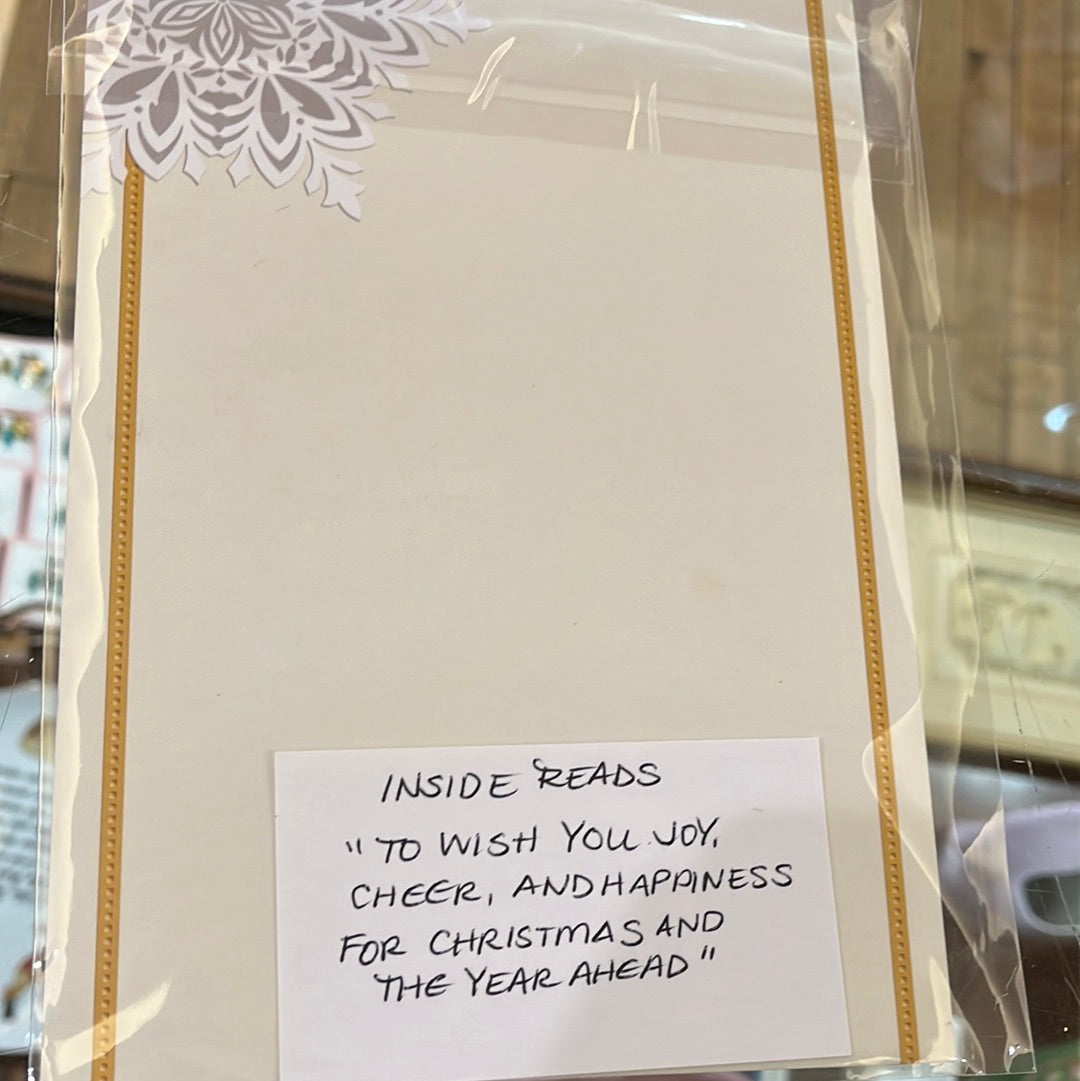 INSIDE READS
"TO WISH YOU JOY,
CHEER, AND HAPPINESS
FOR CHRISTMAS AND
THE YEAR AHEAD"